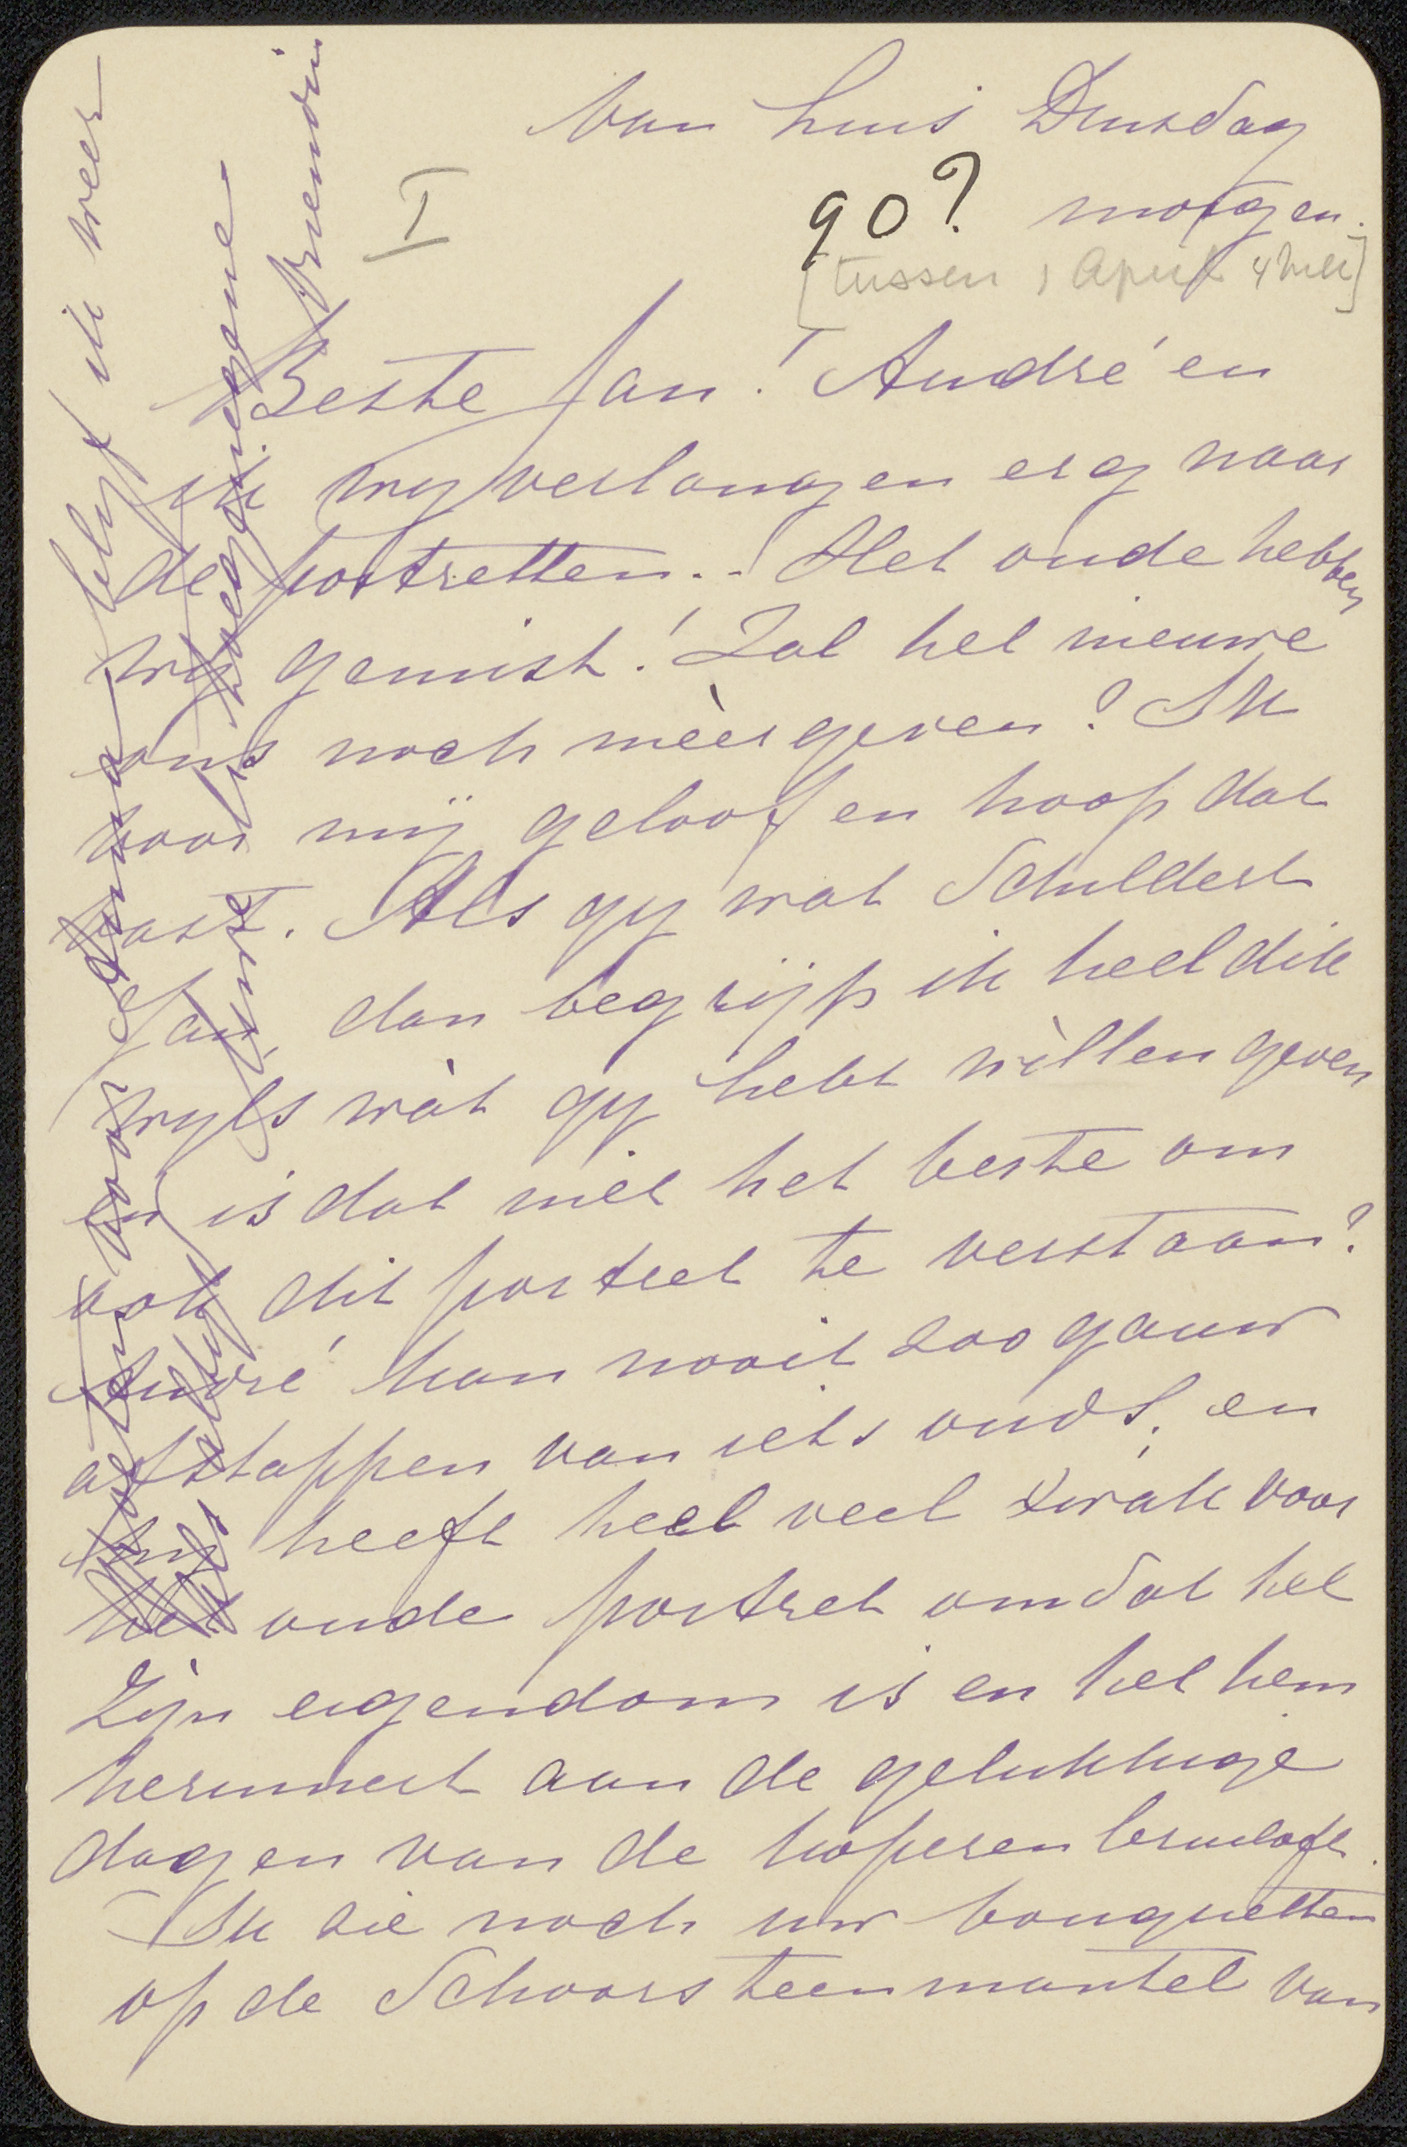 Van huis Dinsdag
90? morgen.
I
[tussen 1 April 4 Mei]
Beste Jan! André en
ik wy verlangen erg naar
de portretten.. Het oude hebben
wy gemist! Zal het nieuwe
ons noch mèèr geven? Ik
voor mij geloof en hoop dat
vast. Als gy wat Schildert
Jan, dan begrijp ik heel dik
wyls wàt gy hebt willen geven
en is dat niet het beste om
ook dit portret te verstaan?
André kan nooit zoo gauw
afstappen van iets ouds, en
hy heeft heel veel zwak voor
het oude portret omdat het
Zijn eigendom is en het hem
herinnert aan de gelukkige
dagen van de koperen bruiloft.
Ik zie noch uw bouquetten
op de Schoorsteenmantel van
Groeten voor Anna blyf ik weer
Als altyd Uwe liefhebbende
vriendin